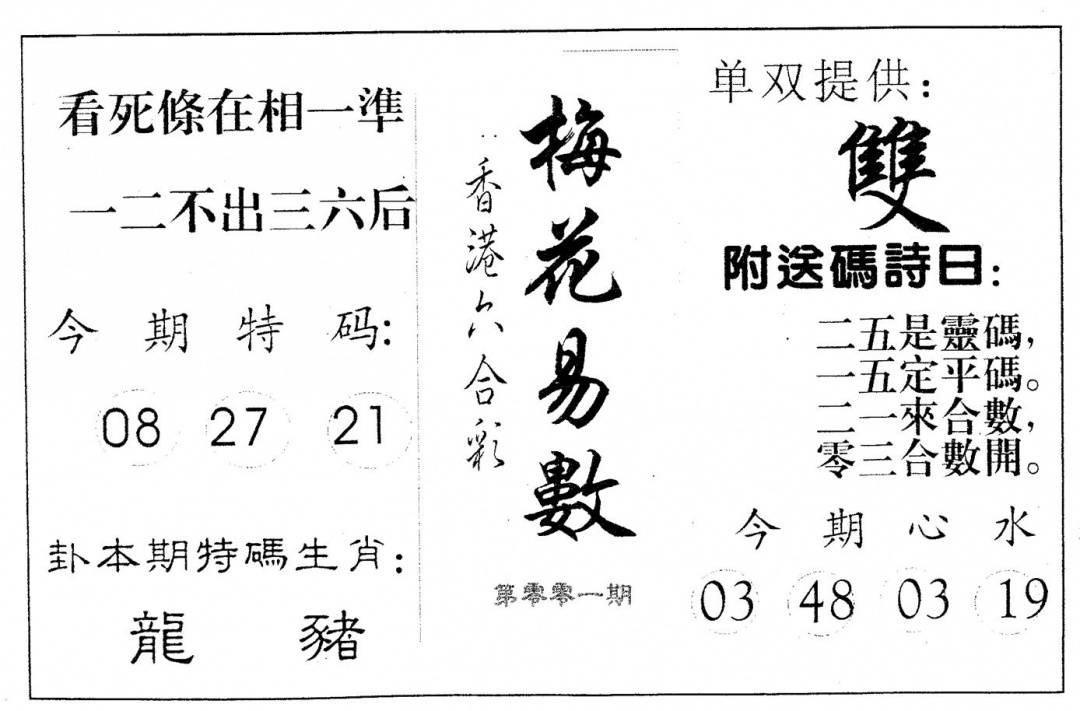 看死條在相一準
一二不出三六后
今期特码:
08 27 21
卦本期特碼生肖:
龍 豬
香港六合彩
梅花易數
第零零一期
单双提供:
雙
附送碼詩日:
二五是靈碼,
一五定平碼。
二一來合數,
零三合數開。
今期心水
03 48 03 19